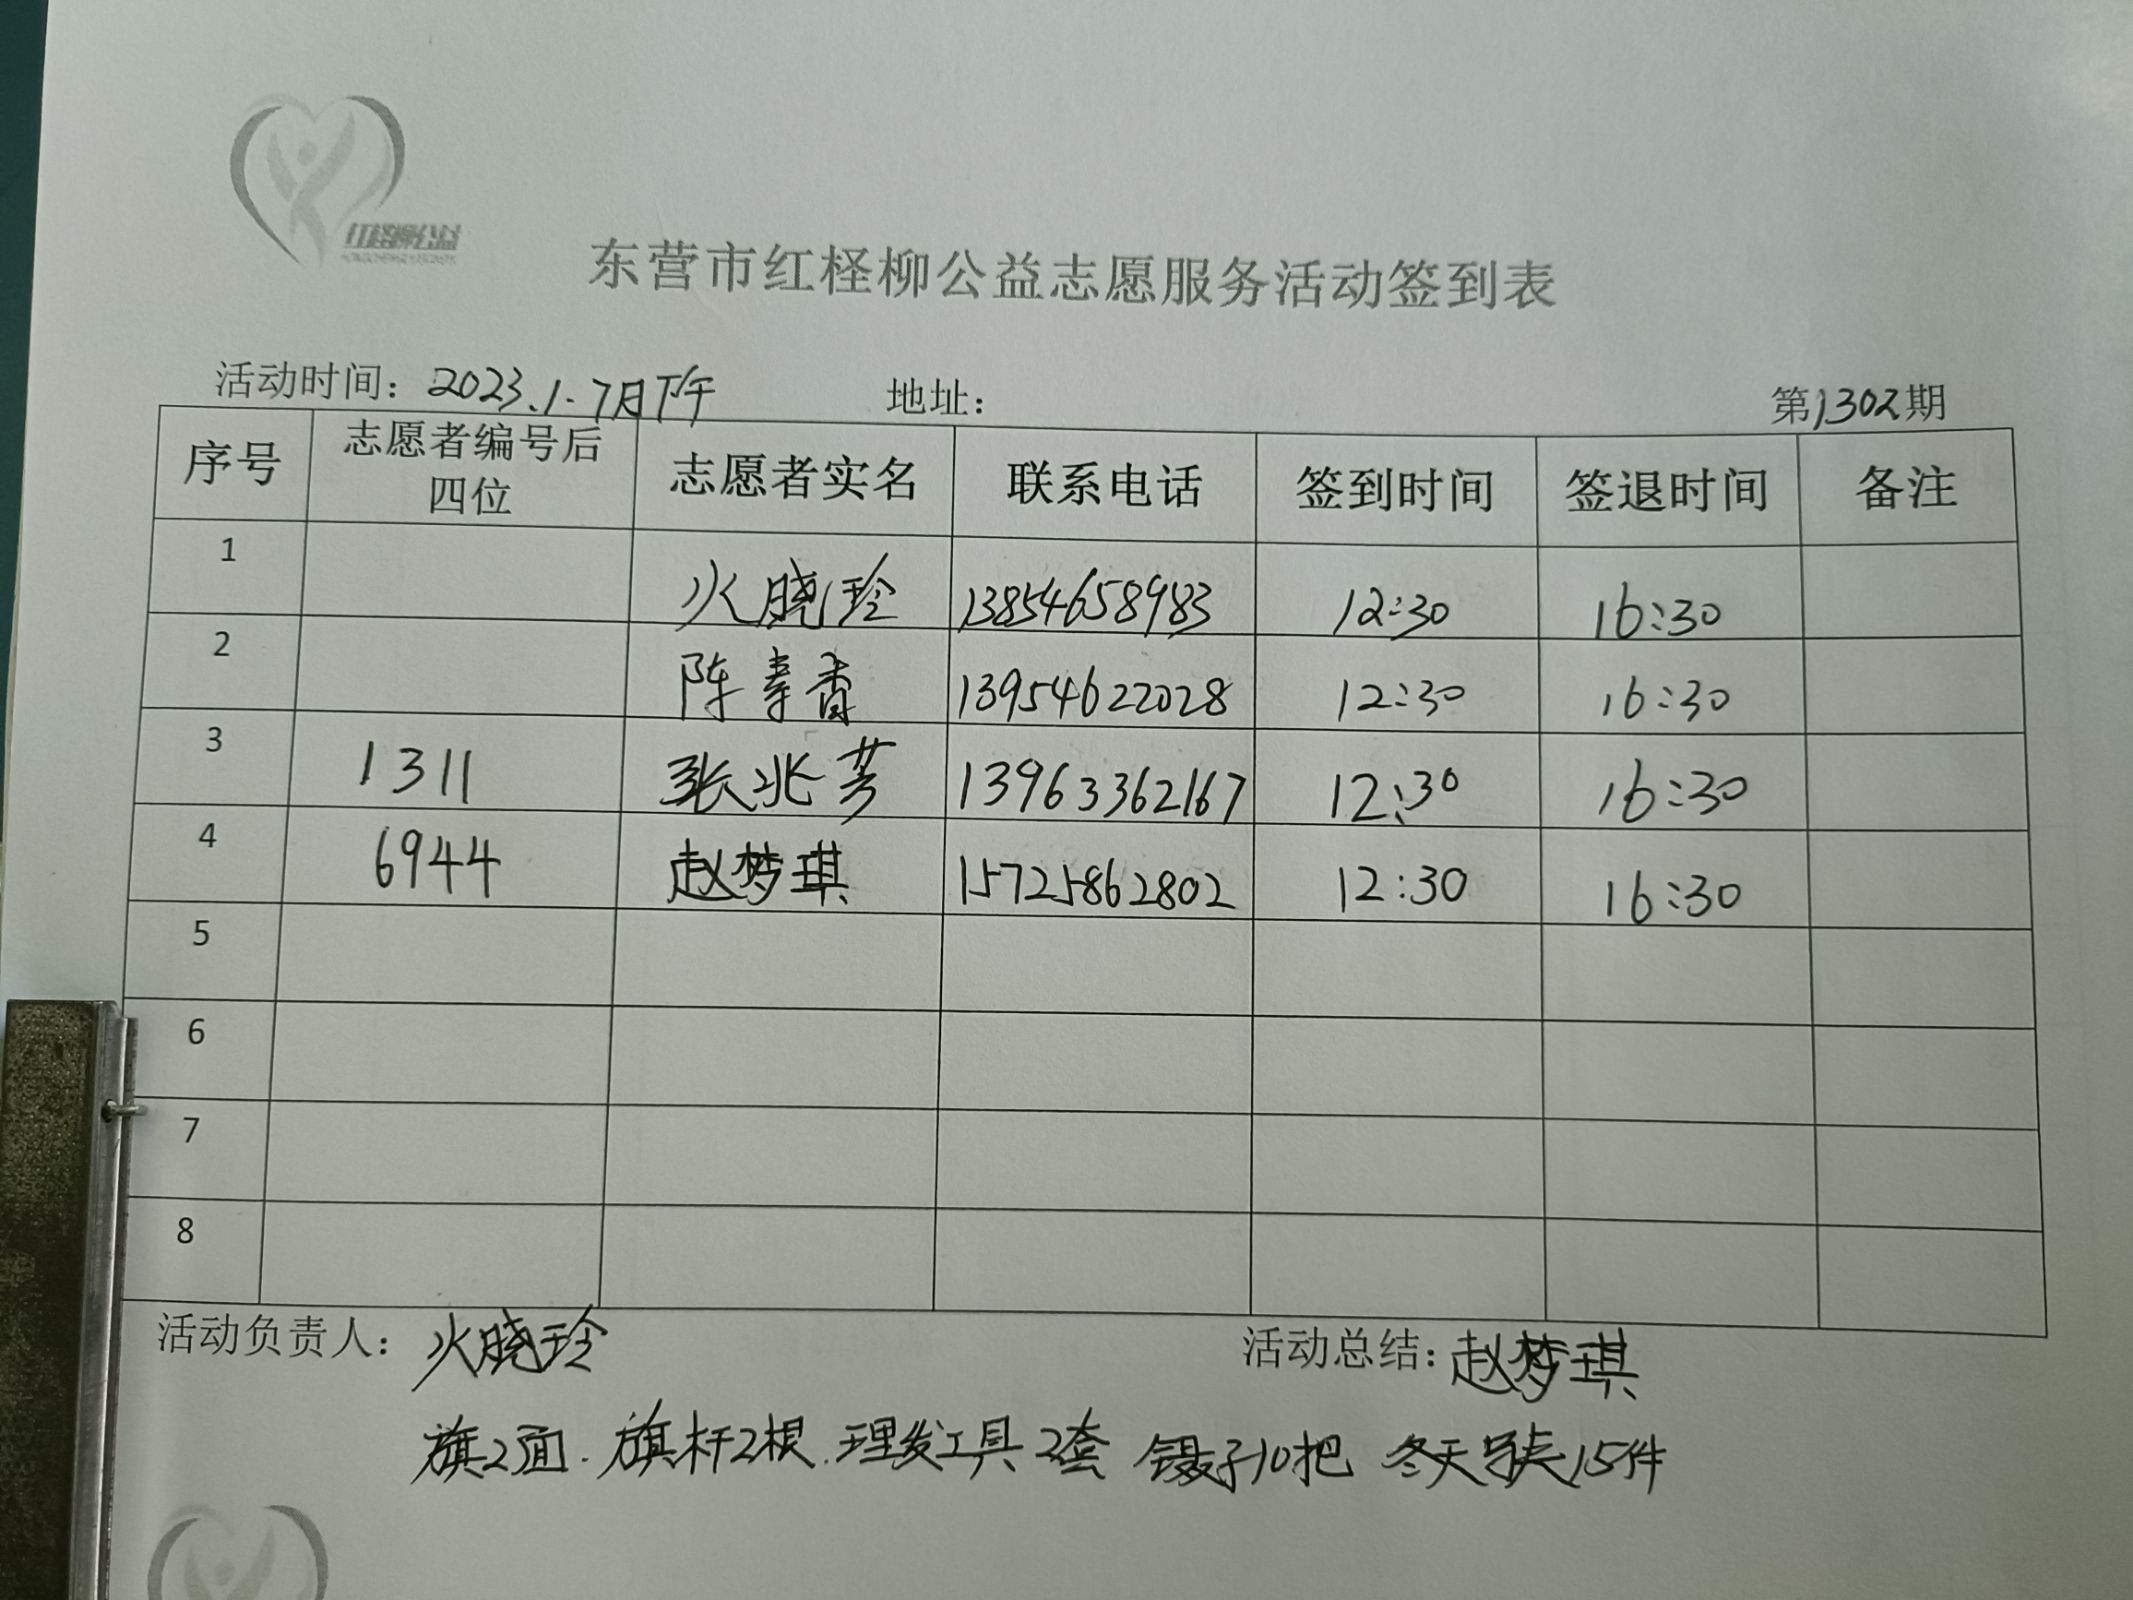 红柽柳公益
东营市红柽柳公益志愿服务活动签到表
活动时间：2023.1.7月下午 地址： 第1302期
序号 志愿者编号后四位 志愿者实名 联系电话 签到时间 签退时间 备注
1 火晓玲 13854658983 12:30 16:30
2 陈素香 13954622028 12:30 16:30
3 1311 张兆芳 13963362167 12:30 16:30
4 6944 赵梦琪 15725862802 12:30 16:30
5
6
7
8
活动负责人：火晓玲 活动总结：赵梦琪
旗2面.旗杆2根.理发工具2套 镊子10把 冬天 15件